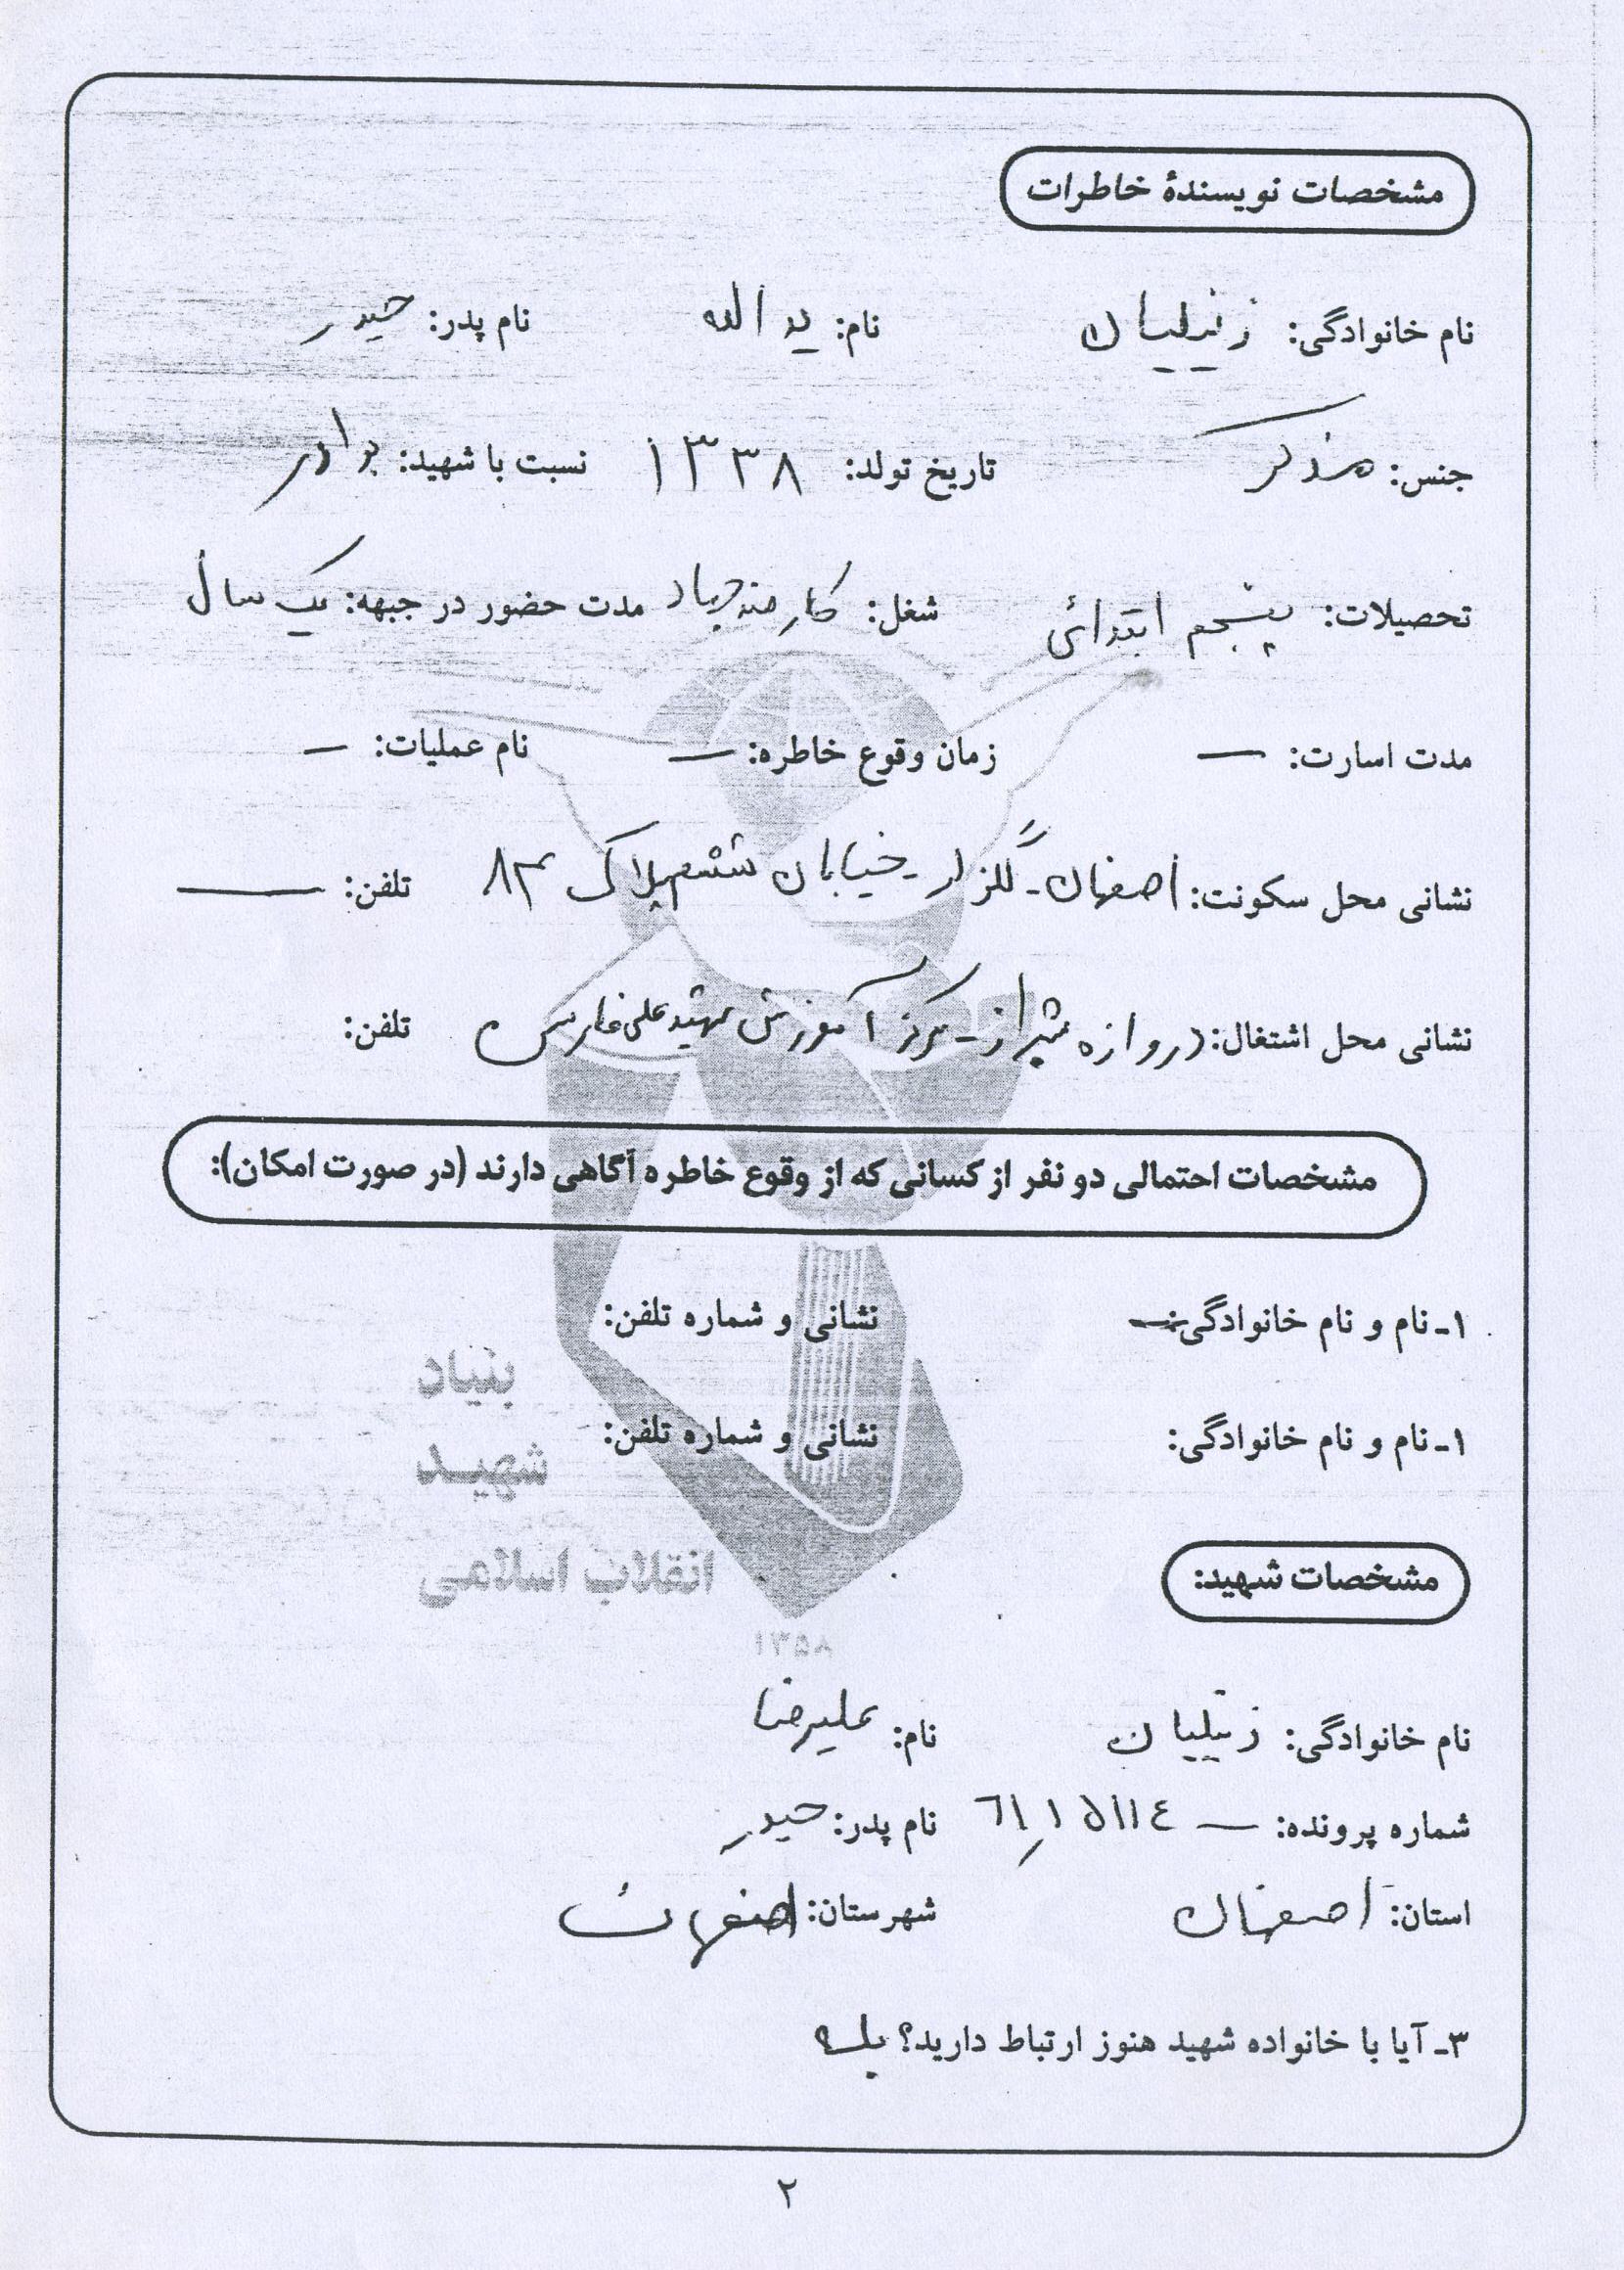 مشخصات نویسندهٔ خاطرات
نام خانوادگی: زنبیلیان نام: یداله نام پدر: حیدر
جنس: مذکر تاریخ تولد: ۱۳۳۸ نسبت با شهید: برادر
تحصیلات: پنجم ابتدائی شغل: کارمند جهاد مدت حضور در جبهه: یک سال
مدت اسارت: — زمان وقوع خاطره: — نام عملیات: —
نشانی محل سکونت: اصفهان - گلزار - خیابان ششم پلاک ۸۳ تلفن: —
نشانی محل اشتغال: دروازه شیراز - مرکز آموزش شهید علی فارسی تلفن:
مشخصات احتمالی دو نفر از کسانی که از وقوع خاطره آگاهی دارند (در صورت امکان):
۱ـ نام و نام خانوادگی: — نشانی و شماره تلفن:
۱ـ نام و نام خانوادگی: نشانی و شماره تلفن:
بنیاد
شهید
انقلاب اسلامی
۱۳۵۸
مشخصات شهید:
نام خانوادگی: زنبیلیان نام: علیرضا
شماره پرونده: — ٦١,١٥١١٤ نام پدر: حیدر
استان: اصفهان شهرستان: اصفهان
۳ـ آیا با خانواده شهید هنوز ارتباط دارید؟ بله
۲